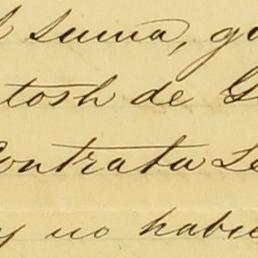 l suma, qu
tosh de G
Contrata Le
y no habie